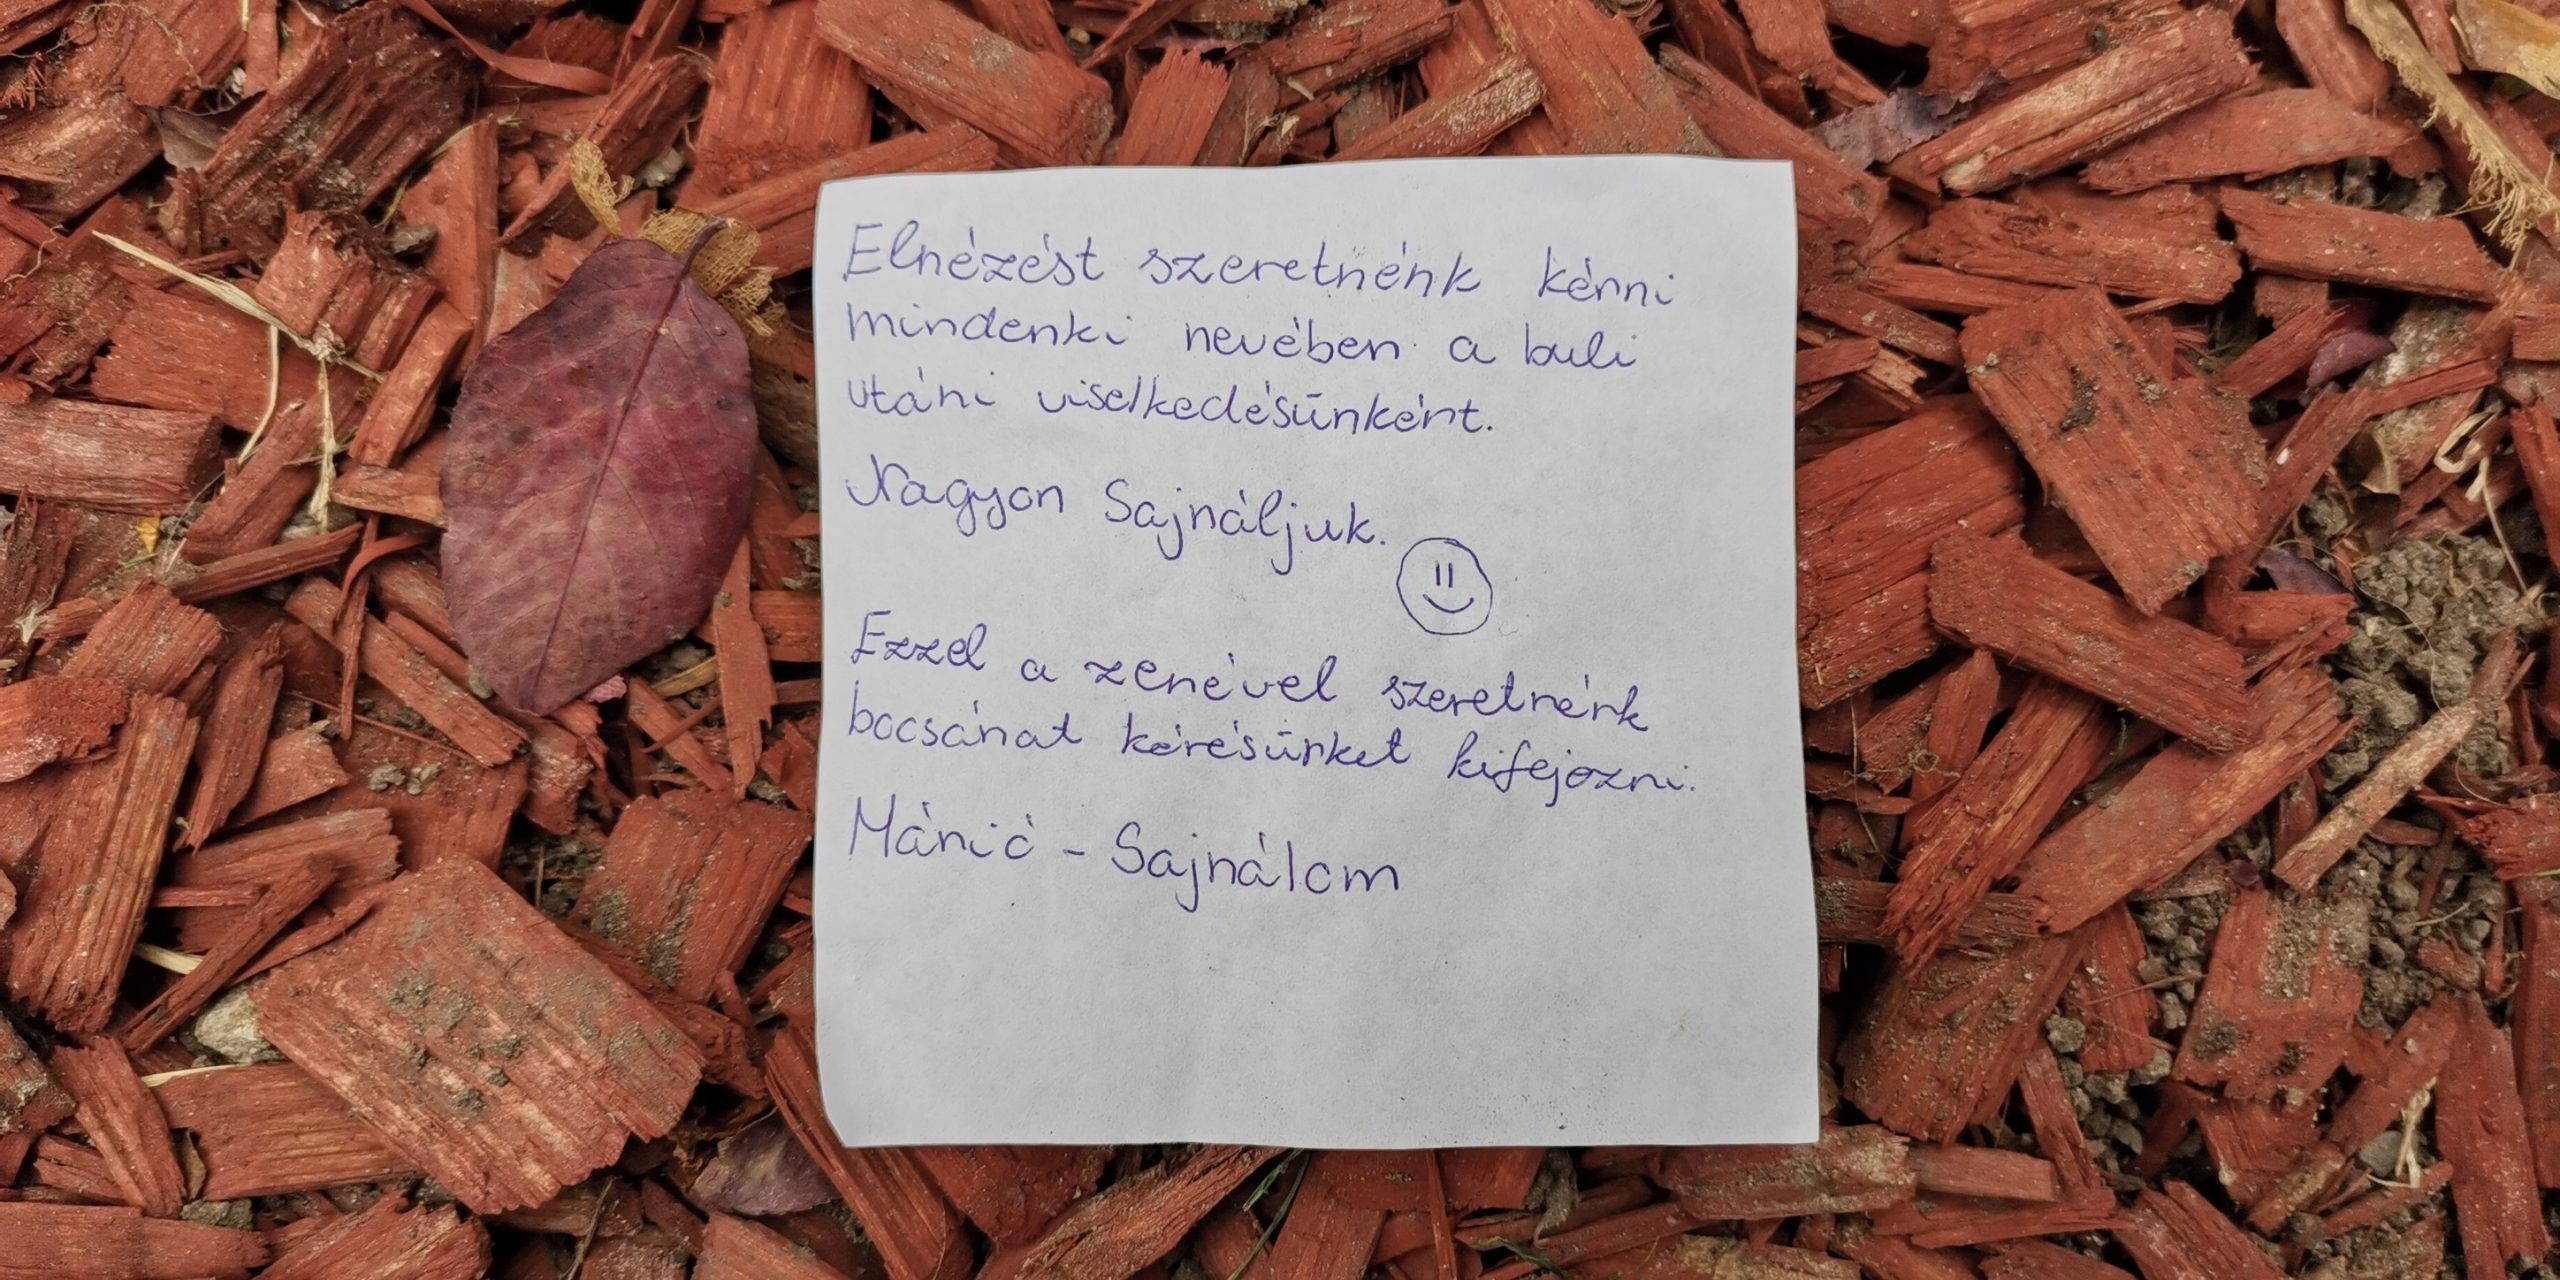 Elnézést szeretnénk kérni
mindenki nevében a buli
utáni viselkedésünkért.
Nagyon Sajnáljuk.
Ezzel a zenével szeretnénk
bocsánat kérésünket kifejezni.
Márió - Sajnálom